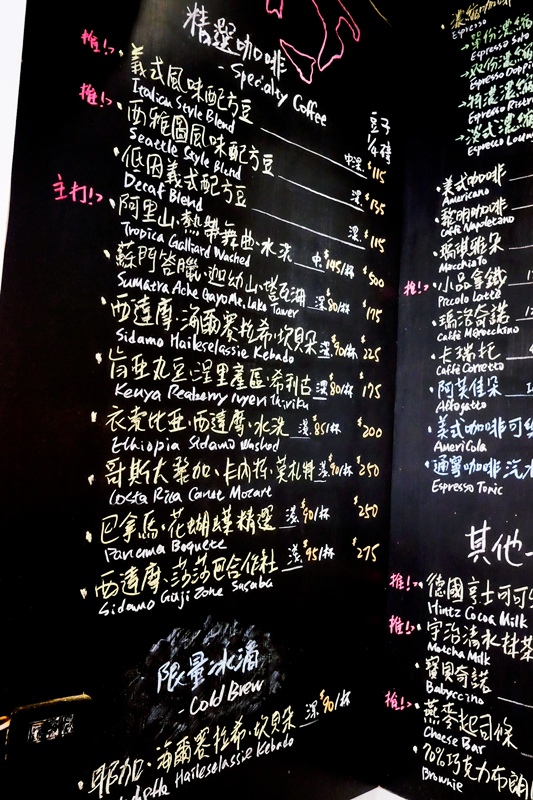 精選咖啡
- Specialty Coffee
豆子
1/4磅
推!> 義式風味配方豆 中深 $115
Italian Style Blend
推!> 西雅圖風味配方豆 深 $135
Seattle Style Blend
低因義式配方豆 深 $115
Decaf Blend
主打!> 阿里山·熱帶舞曲·水洗 中 $145/杯 $500
Tropica Galliard Washed
蘇門答臘·迦幼山·塔瓦湖 深 $80/杯 $175
Sumatra Ache Gayo Mt. Lake Tawer
西達摩·海爾賽拉希·坎貝朵 淺 $90/杯 $225
Sidamo Haileselassie Kebado
肯亞丸豆·涅里產區·希利古 淺 $80/杯 $175
Kenya Peaberry Nyeri Thiriku
衣索比亞·西達摩·水洗 淺 $85/杯 $200
Ethiopia Sidamo Washed
哥斯大黎加·卡內特·莫札特 淺 $90/杯 $250
Costa Rica Canet Mozart
巴拿馬·花蝴蝶精選 淺 $90/杯 $250
Panema Boquete
西達摩·莎莎巴合作社 淺 $95/杯 $275
Sidamo Guji Zone Sasaba
限量冰滴
- Cold Brew
耶加·海爾賽拉希·坎貝朵 深 $90/杯
Haileselassie Kebado
濃縮咖啡
Espresso
→單份濃縮
Espresso Solo
→双份濃縮
Espresso Doppi
→特濃濃縮
Espresso Ristr
→淡式濃縮
Espresso Loung
美式咖啡
Americano
黎明咖啡
Caffé Napoletano
瑪琪雅朵
Macchiato
推!> 小品拿鐵
Piccolo Latté
瑪洛奇諾
Caffé Marocchino
卡瑞托
Caffé Corretto
阿芙佳朵
Affogatto
美式咖啡可
AmeriCola
通寧咖啡汽水
Espresso Tonic
其他
推!> 德國亨士可可
Hintz Cocoa Milk
推!> 宇治清水抹茶
Matcha Milk
寶貝奇諾
Babyccino
推!> 燕麥起司條
Cheese Bar
70%巧克力布朗
Brownie